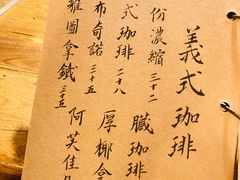 義式珈琲
份濃縮 三十二
式珈琲 二十八
布奇諾 三十五
雅圖拿鐵 三十五
臟珈琲
厚椰拿
阿芙佳